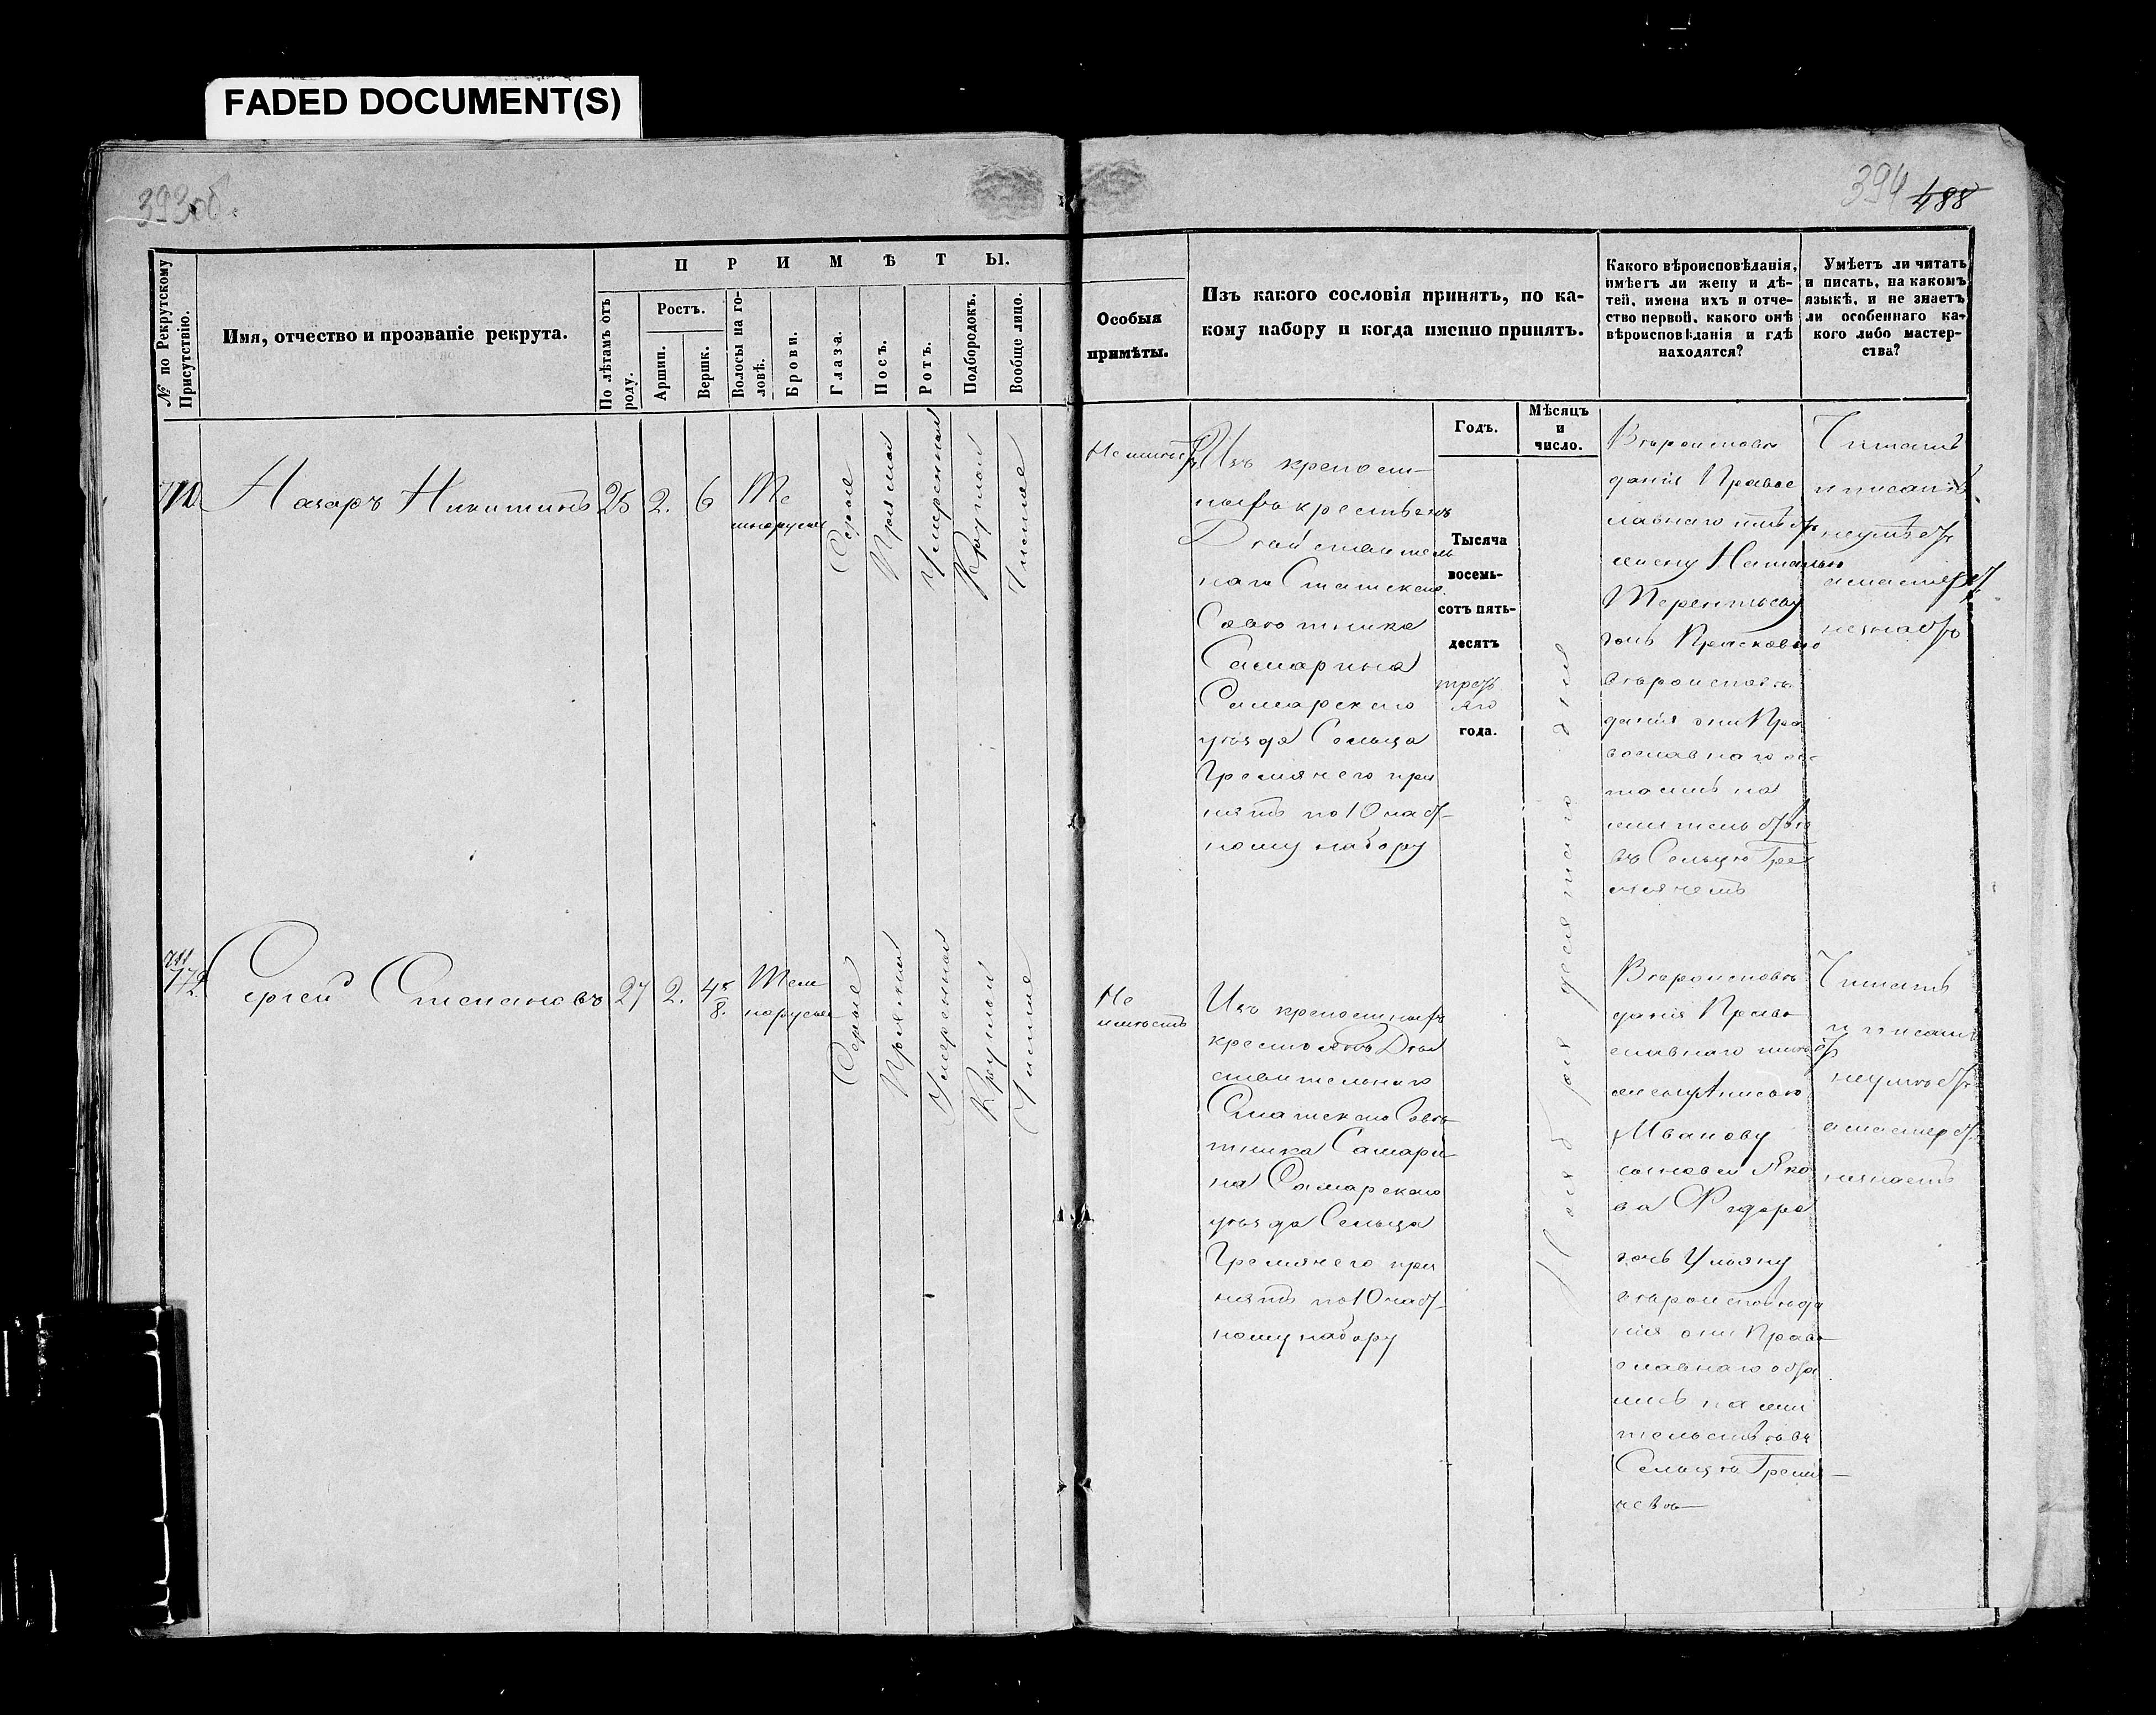 FADED DOCUMENT(S)
393об.
394 488
№ по Рекрутскому Присутствію.
Имя, отчество и прозваніе рекрута.
ПРИМѢТЫ.
По лѣтамъ отъ роду.
Ростъ.
Аршин.
Вершк.
Волосы на головѣ.
Брови.
Глаза.
Носъ.
Ротъ.
Подбородокъ.
Вообще лицо.
Особыя
примѣты.
Изъ какого сословія принятъ, по ка-
кому набору и когда именно принятъ.
Годъ.
Мѣсяцъ
и
число.
Какого вѣроисповѣданія,
имѣетъ ли жену и дѣ-
тей, имена ихъ и отче-
ство первой, какого онѣ
вѣроисповѣданія и гдѣ
находятся?
Умѣетъ ли читать
и писать, на какомъ
языкѣ, и не знаетъ
ли особеннаго ка-
кого либо мастер-
ства?
Назаръ Никитинъ
25
2.
6
Те
мнорусые
Серые
Прямой
Умеренный
Круглой
Чистое
Не имѣетъ
Изъ крепост-
ныхъ крестьянъ
Действитель
наго Статскаго
Советника
Самарина
Самарскаго
уѣзда Сельца
Гремячего при
нятъ по 10 част-
ному набору
Тысяча
восемь-
сотъ пять-
десятъ
треть
яго
года.
Ноября десятаго дня
Вѣроисповѣ
данія Правос
лавнаго имѣетъ
жену Наталью
Терентьеву
дочь Прасковью
вѣроисповѣ
данія они Пра
вославнаго ос-
тались на
жительствѣ
въ Сельцѣ Гре
мячемъ
Читать
и писать
неумѣетъ
а мастерст.
незнаетъ
711
712
Сергей Степановъ
27
2.
4 5/8.
Темно
норусые
Серые
Прямой
Умеренной
Круглый
Чистое
Не
имѣетъ
Изъ крепостныхъ
крестьянъ Дѣй
ствительнаго
Статскаго Совѣ
тника Самари
на Самарскаго
уѣзда Сельца
Гремячего при
нятъ по 10 част-
ному набору
Вѣроисповѣ
данія Право
славнаго имѣетъ
жену Анисью
Иванову
сыновей Яко
ва Федора
дочь Ульяну
вѣроисповѣда
нія они Право
славнаго оста
лись на жи
тельствѣ въ
Сельцѣ Гремя-
чевѣ
Читать
и писать
неумѣетъ
а мастерст.
незнаетъ